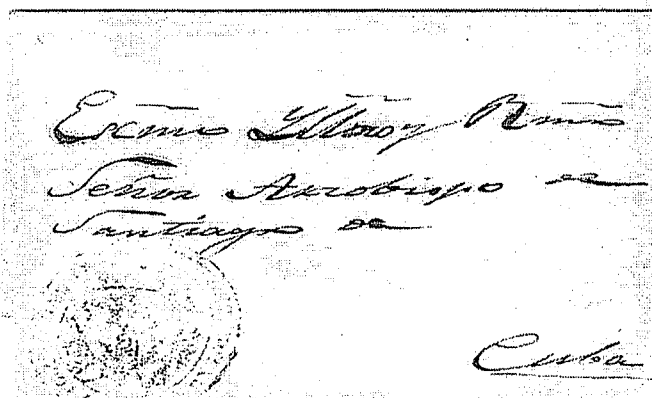 Excmo Yltmo y Rmo
Señor Arzobispo de
Santiago de
Cuba